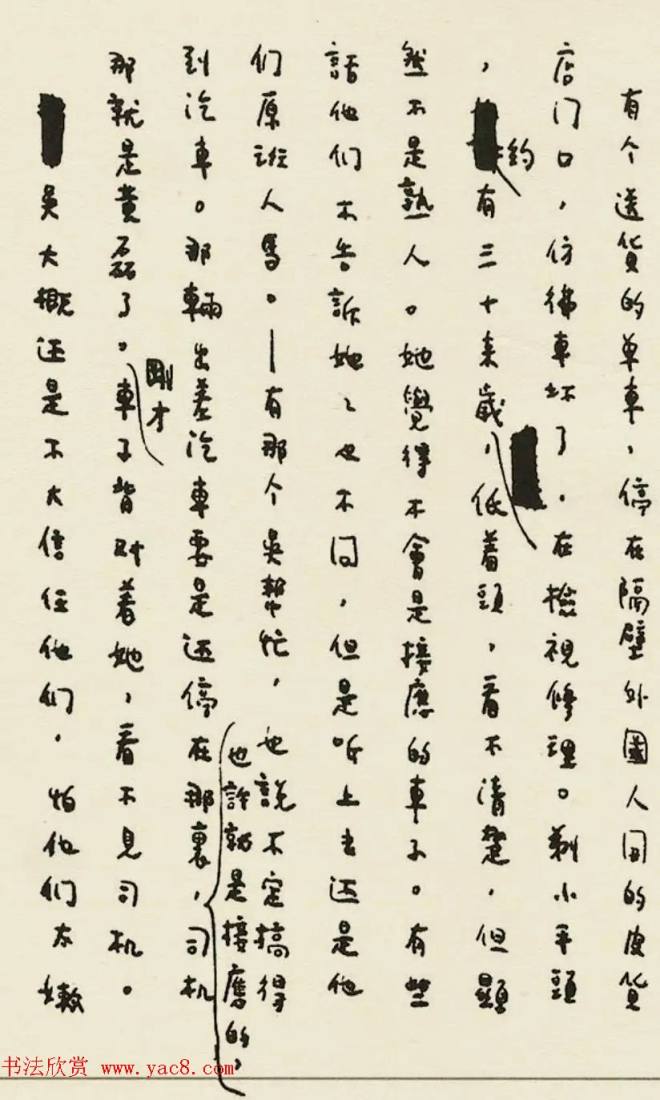 有个送貨的单車，停在隔壁外國人囬的皮貨
店门口，仿彿車坏了，在檢視修理。剃小平頭
，約有三十来歲，低着頭，看不清楚，但顯
然不是熟人。她覺得不會是接應的車子。有些
話他们不告訴她她也不问，但是听上去还是他
们原班人馬。—有那个吳幫忙，也說不定搞得
到汽車。那輛出差汽車要是还停在那裏，也許就是接應的，司机
那就是黃磊了。剛才車子背对着她，看不見司机。
吳大概还是不大信任他们，怕他们太嫩
书法欣赏 www.yac8.com